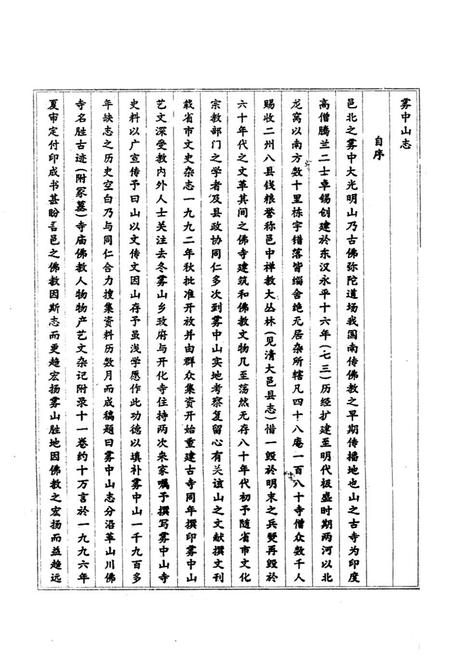 雾中山志
自序
邑北之雾中大光明山乃古佛弥陀道场我国南传佛教之早期传播地也山之古寺为印度
高僧腾兰二士卓锡创建于东汉永平十六年(七三)历经扩建至明代极盛时期两河以北
龙窝以南方数十里栋宇错落皆缁舍绝无居杂所辖凡四十八庵一百八十寺僧众数千人
赐收二州八县钱粮誉称邑中禅教大丛林(见清大邑县志)惜一毁于明末之兵燹再毁于
六十年代之文革其间之佛寺建筑和佛教文物几至荡然无存八十年代初予随省市文化
宗教部门之学者及县政协同仁多次到雾中山实地考察复留心有关该山之文献撰文刊
载省市文史杂志一九九二年秋批准开放并由群众集资开始重建古寺同年撰印雾中山
艺文深受教内外人士关注去冬雾山乡政府与开化寺住持两次来家嘱予撰写雾中山寺
史料以广宣传予曰山以文传文因山存予虽浅学愿作此功德以填补雾中山一千九百多
年缺志之历史空白乃与同仁合力搜集资料历数月而成稿题曰雾中山志分沿革山川佛
寺名胜古迹(附冢墓)寺庙佛教人物物产艺文杂记附录十一卷约十万言于一九九六年
夏审定付印成书甚盼吾邑之佛教因斯志而更趋宏扬雾山胜地因佛教之宏扬而益趋远